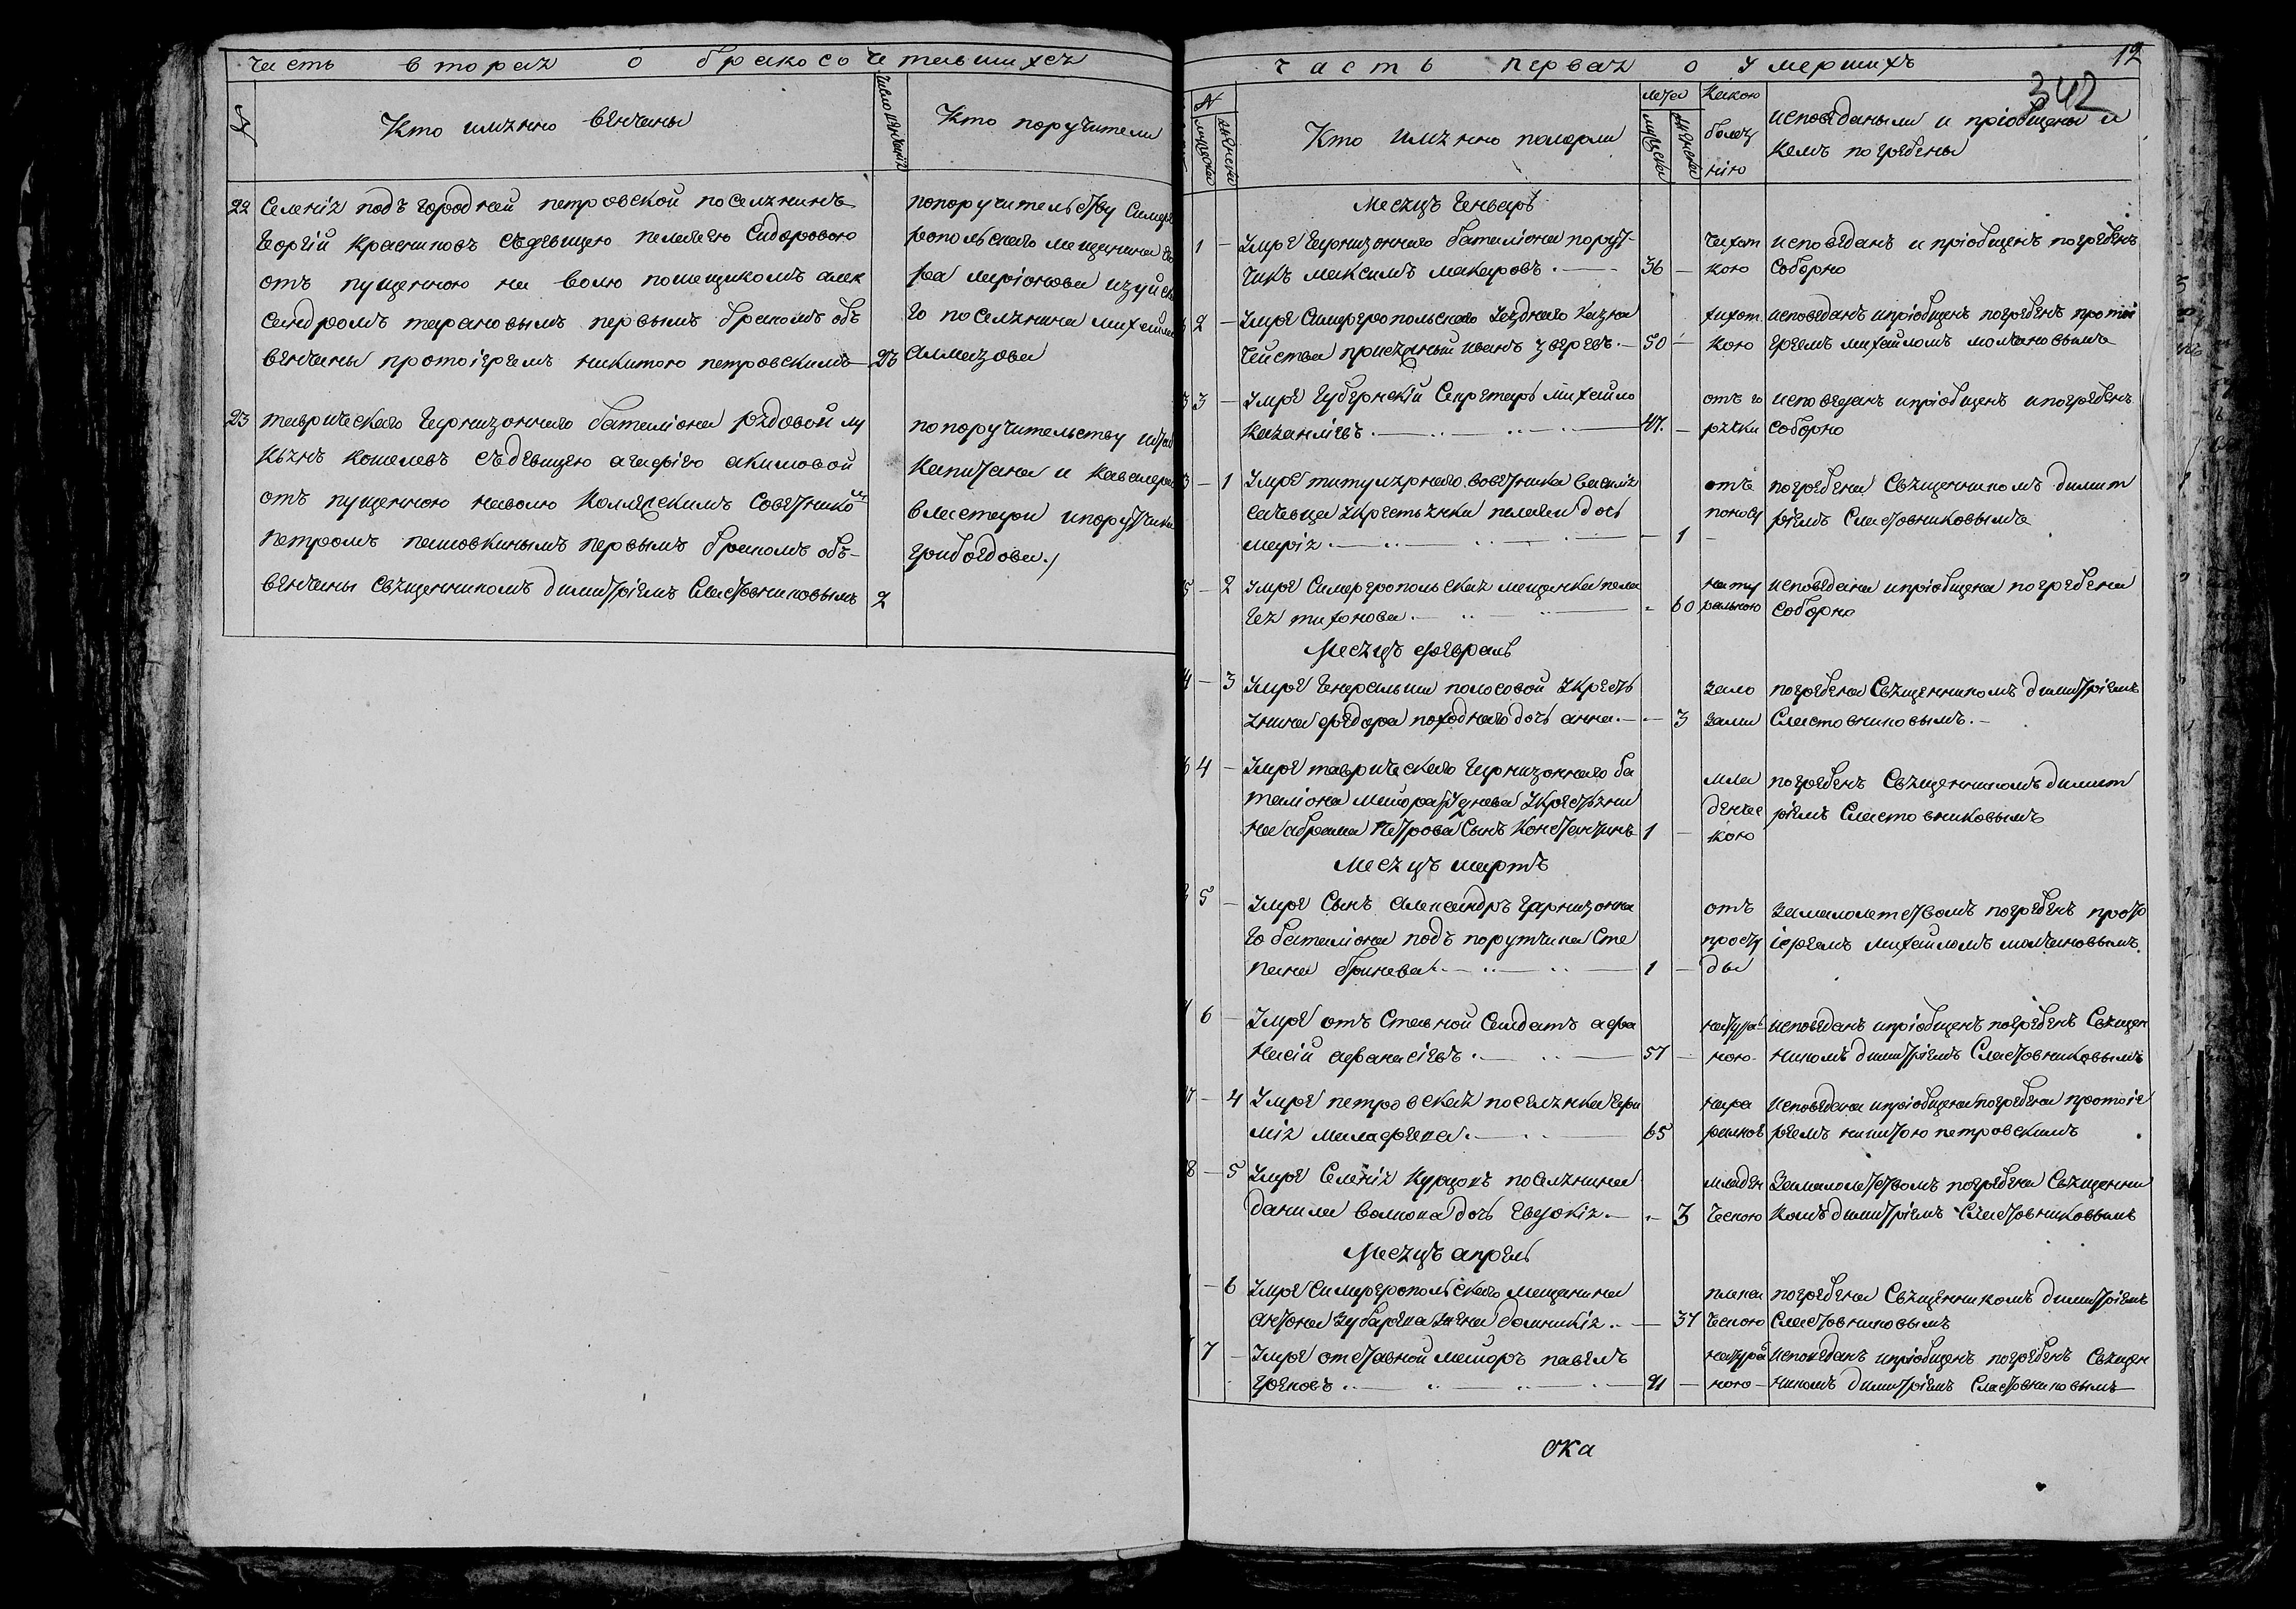 Часть вторая о бракосочетавшихся
№
Кто имянно венчаны
Кто поручители
22 Селенія подъ городней петровской поселянинъ
Георгій Красниковъ съдевицею пелагеею Сидоровою
отъ пущенною на волю помещикомъ алек
сандромъ тарановымъ первымъ бракомъ объ
венчаны протоіереемъ никитою петровскимъ
попоручительству Симфе
ропольскаго мещанина
ларіонова изуйска
го поселянина михайлы
алмазова
23 таврическаго гарнизоннаго баталіона рядовой лу
кьянъ кошелевъ съдевицею агафіею акимовой
отъ пущенною наволю Коллежскимъ Советнико
петромъ пашовкинымъ первымъ бракомъ объ-
венчаны священникомъ димитріемъ Сластовниковымъ 2
попоручительству штаб
капитана и кавалера
властари ипоручика
грибоедова
12
часть первая о умершихъ
342
№
мужска
женска
Кто имянно померли
лета
мужска
женска
Какою
болез
нію
исповеданыли и пріобщены и
кемъ погребены
Месяцъ Генварь
1 — Умре гарнизоннаго баталіона порут-
чикъ максимъ макаровъ 36 —
чахот
кою
исповеданъ и пріобщенъ погребенъ
соборно
2 — Умре Симферопольскаго Уезднаго Казна
чейства присяжный иванъ зверевъ 50 —
чихот
кою
исповеданъ ипріобщенъ погребенъ протоі
ереемъ михайломъ молчановымъ
3 — Умре Губернскій Секретарь михайло
Казанліевъ 47 —
отъ го
рячки
исповеданъ ипріобщенъ ипогребенъ
соборно
— 1 Умре титулярнаго советника василія
крестьянки пелагеи дочь
марія — 1
отъ
поносу
погребена Священникомъ димит
ріемъ Сластовниковымъ
5 — 2 Умре Симферопольская мещанка пела
гея тихонова 60
нату
ральною
исповедана ипріобщена погребена
соборно
Месяцъ февраль
— 3 Умре Генеральши полосовой Укресть
янина федора походнаго дочь анна — 3
золо
зами
погребена Священникомъ димитріемъ
Сластовниковымъ
6 4 — Умре таврическаго гарнизоннаго ба
таліона маіора Укрестьяни
на абрама петрова сынъ константинъ 1 —
мла
денчес
кою
погребенъ Священникомъ димит
ріемъ Сластовниковымъ
Месяцъ мартъ
5 — Умре Сынъ александръ гарнизонна
го баталіона подъ порутчика Сте
пана бринева 1 —
отъ
просту
ды
замалолетствомъ погребенъ прото
іереемъ михайломъ молчановымъ
6 — Умре отъ Ставной Солдатъ афа
насій афанасіевъ 57 —
натура
ною
исповеданъ ипріобщенъ погребенъ Священ
никомъ димитріемъ Сластовниковымъ
— 4 Умре петровская поселянка
65
исповедана ипріобщена погребена протоіе
реемъ никитою петровскимъ
8 — 5 Умре Селенія Курцовъ поселянина
данила волкова дочь евдокія — 3
младен
ческою
Замалолетствомъ погребена Священни
комъ димитріемъ Сластовниковымъ
Месяцъ апрель
— 6 Умре Симферопольскаго мещанина
антона зубарева жена домникія — 37
ческою
погребена Священникомъ димитріемъ
Сластовниковымъ
7 — Умре отставной маіоръ павелъ
грековъ 91 —
натура
ною
исповеданъ ипріобщенъ погребенъ Священ
никомъ димитріемъ Сластовниковымъ
ока